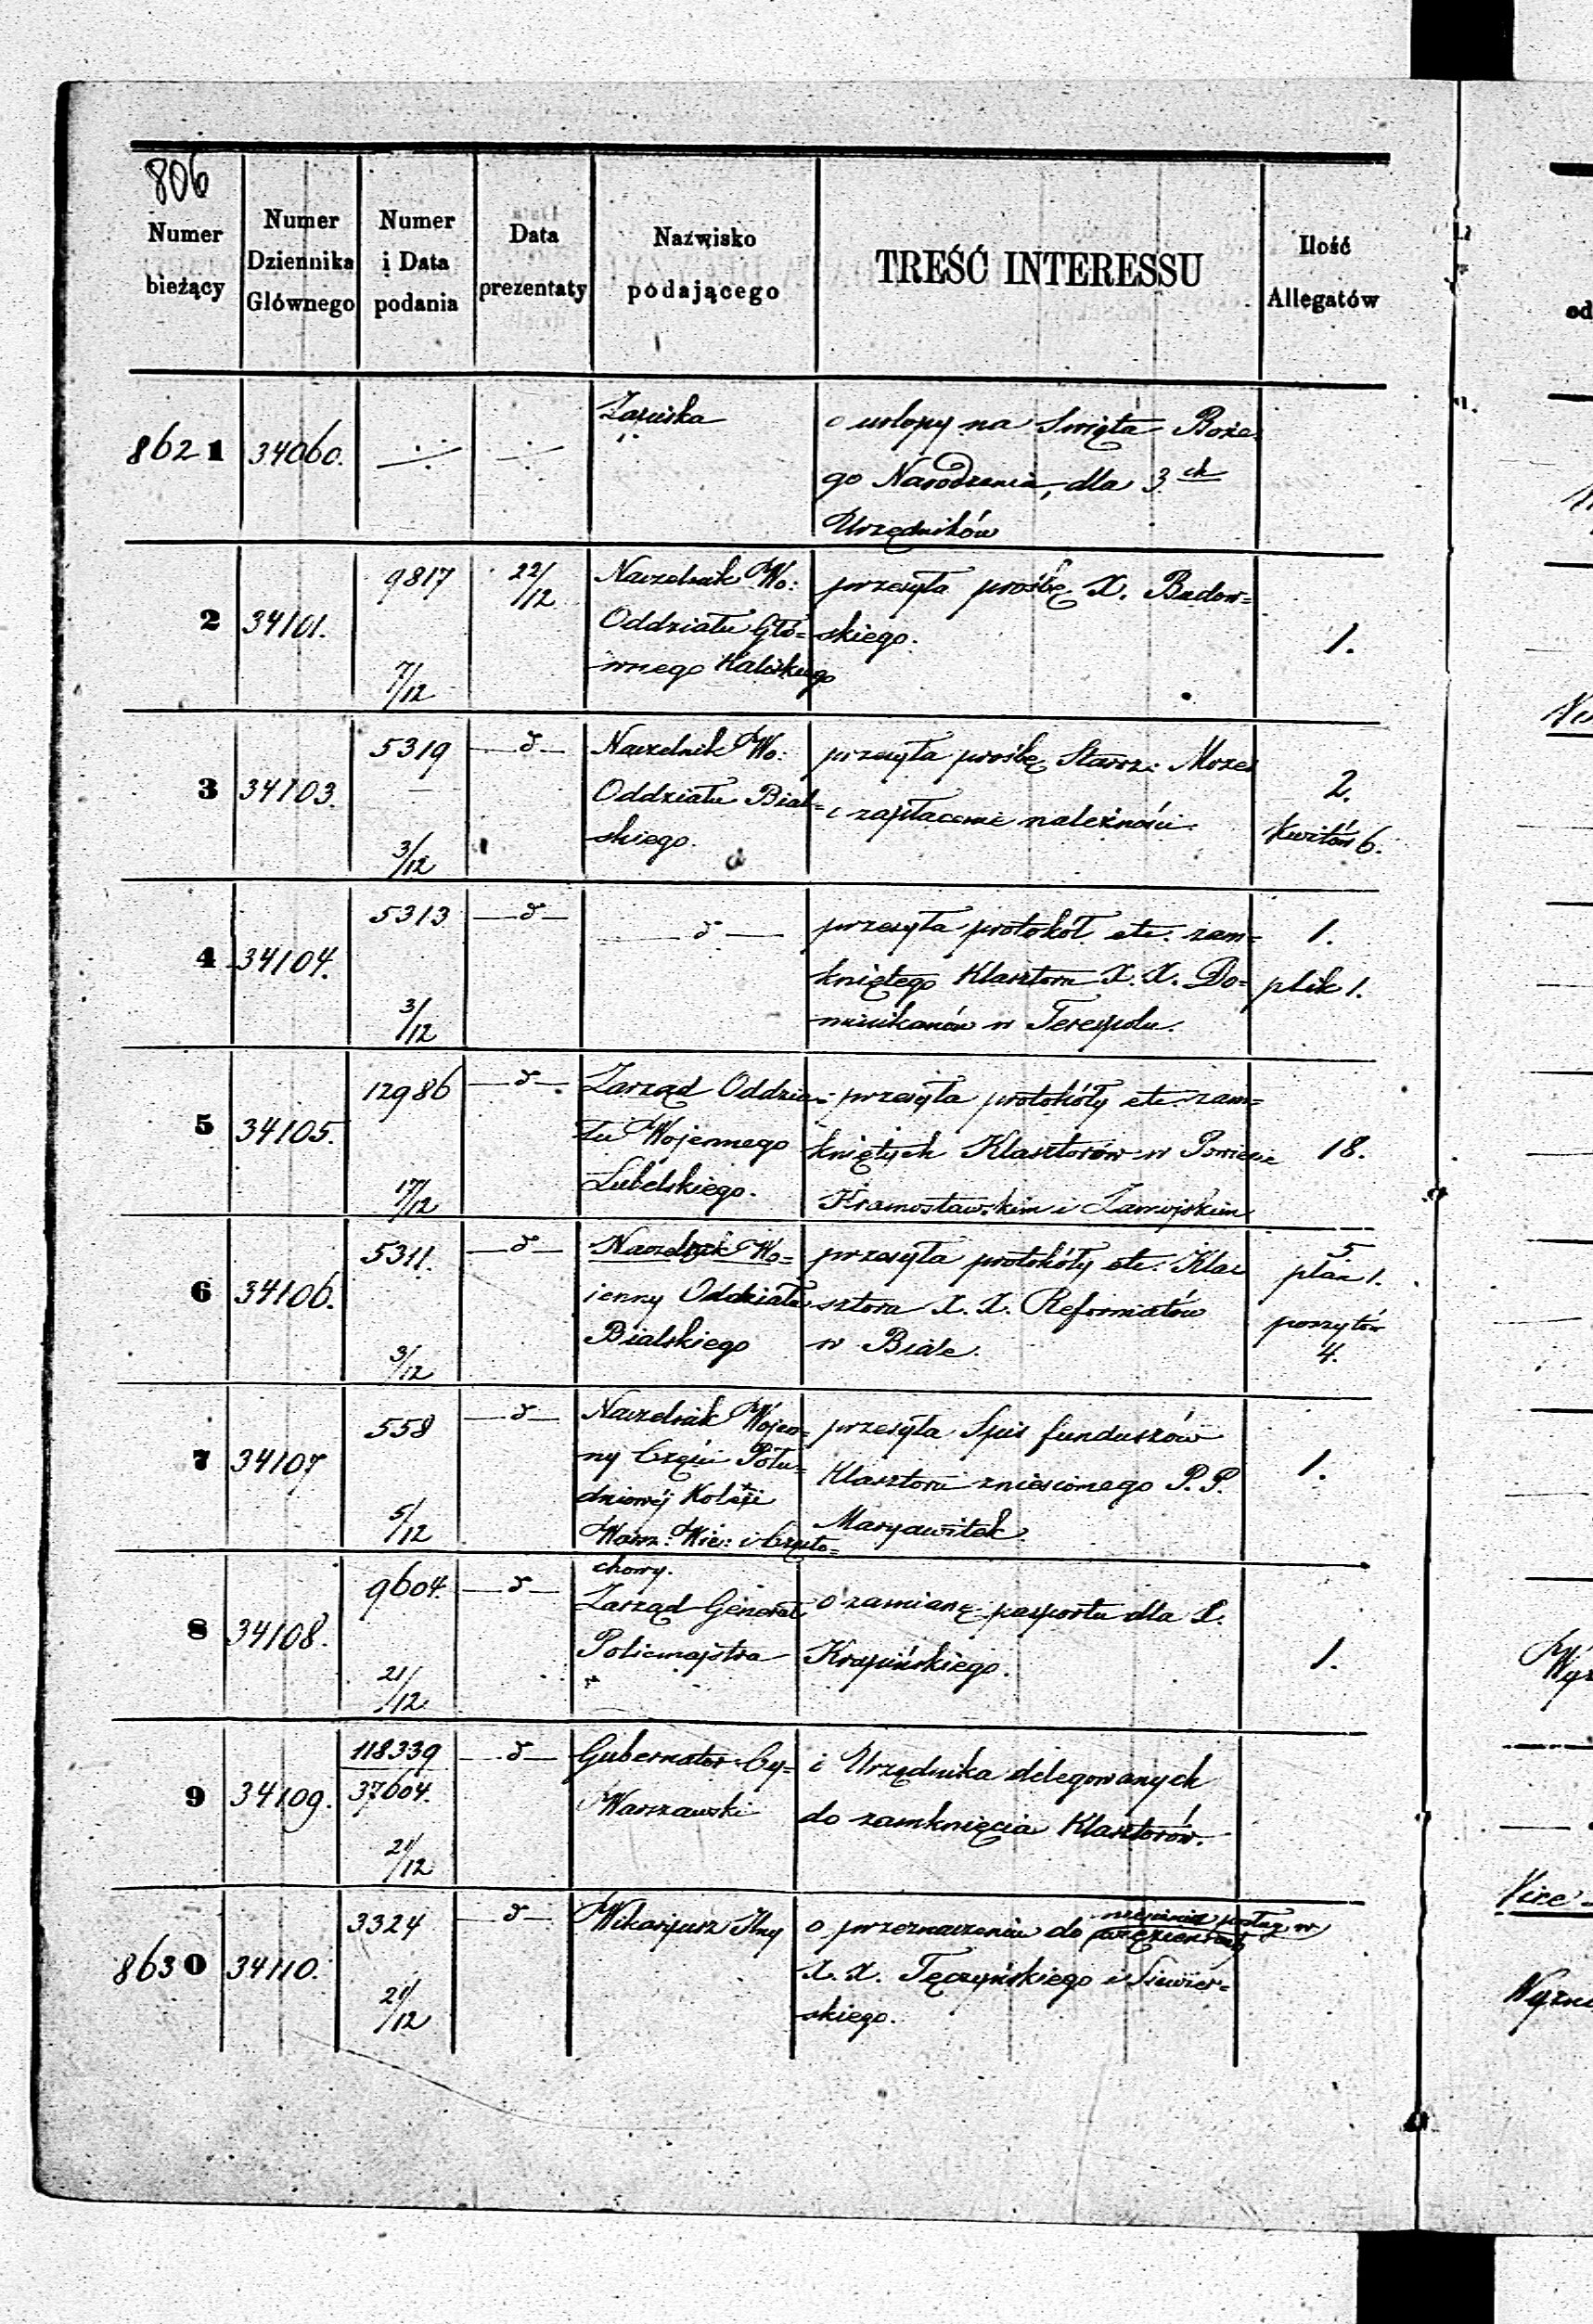 806
Numer bieżący
Numer Dziennika Głównego
Numer i Data podania
Data prezentaty
Nazwisko podającego
TREŚĆ INTERESSU
Ilość Allegatów
8621 34060. ÷ ÷
o urlopy na Święta Boże-
go Narodzenia, dla 3.ch
Urzędników
2 34101. 9817 7/12 22/12
Naczelnik Wo:
Oddziału Głó=
wnego Kaliskiego
przesyła prośbę X. Badow=
skiego.
1.
3 34103. 5319 3/12 —d—
Naczelnik Wo:
Oddziału Bial=
skiego.
przesyła prośbę Staroz: Mozes
o zapłacenie należności.
2.
kwitów 6.
4 34104. 5313 3/12 —d—
—d—
przesyła protokół etc. zam=
kniętego Klasztoru X. X. Do=
minikanów w Terespolu.
1.
plik 1.
5 34105. 12986 17/12 —d—.
Zarząd Oddzia=
łu Wojennego
Lubelskiego.
przesyła protokóły etc. zam=
kniętych Klasztorów w Powiecie
Kramostawskim i Zamojskim
18.
6 34106. 5311. 3/12 —d—
Naczelnik Wo=
jenny Oddziału
Bialskiego
przesyła protokóły etc. Kla
sztoru X. X. Reformatów
w Białe.
5
plan 1.
poszytów
4.
7 34107 558 5/12 —d—
Naczelnik Wojen=
ny Części Połu=
dniowéj Kolei
Warsz: Wie: i Często=
chowy.
przesyła Spis funduszów
Klasztoru zniesionego P. P.
Maryawitek.
1.
8 34108. 9604. 21/12 —d—
Zarząd Generał
Policmajstra
o zamianę pasportu dla X.
Krapińskiego.
1.
9 34109. 118339 37604. 21/12 —d—
Gubernator Cy=
Warszawski
i Urzędnika delegowanych
do zamknięcia Klasztorów.
8630 34110. 3324 21/12 —d—
Wikaryusz
o przeznaczeniu do
X. X. Tęczyńskiego i Siewier=
skiego.